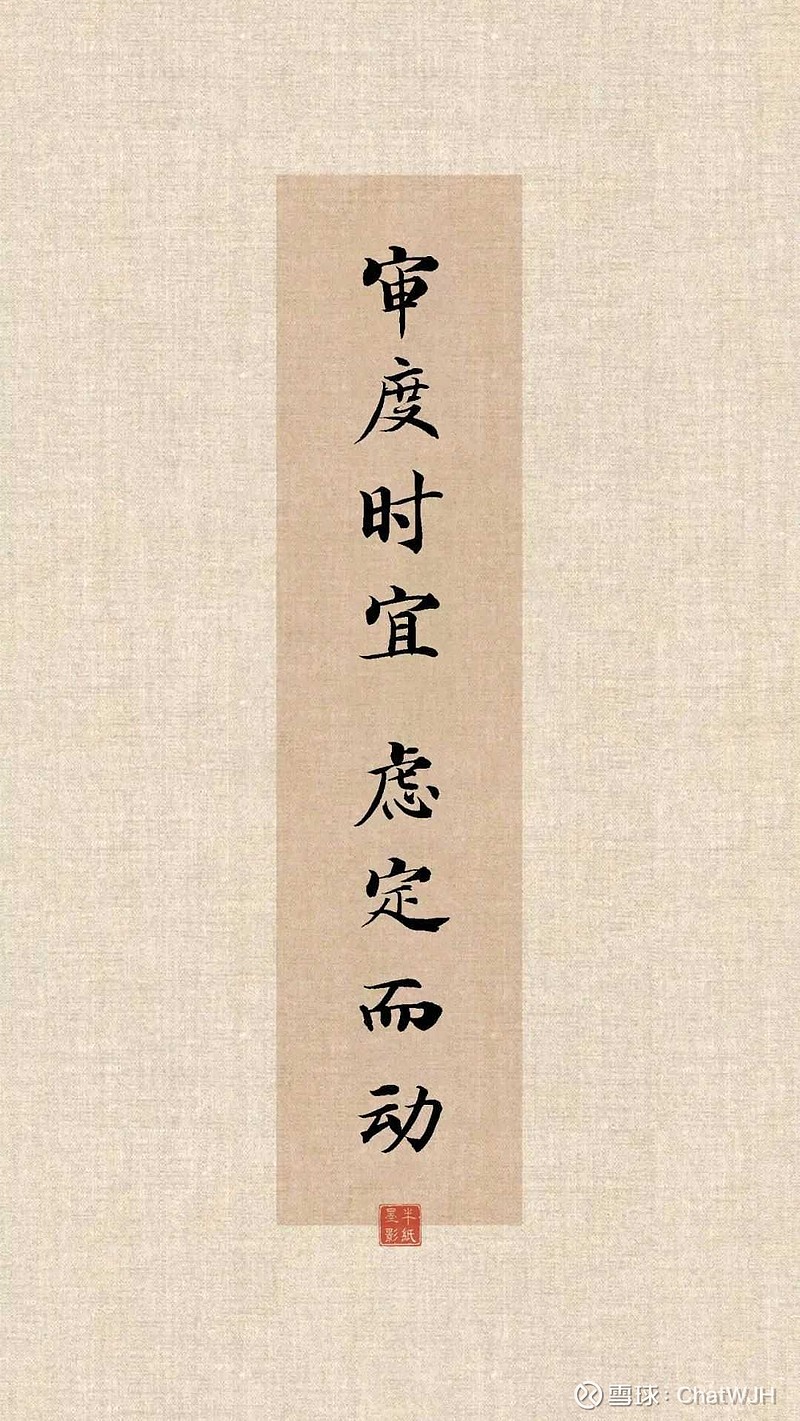 审度时宜 虑定而动
半紙
墨影
雪球：ChatWJH